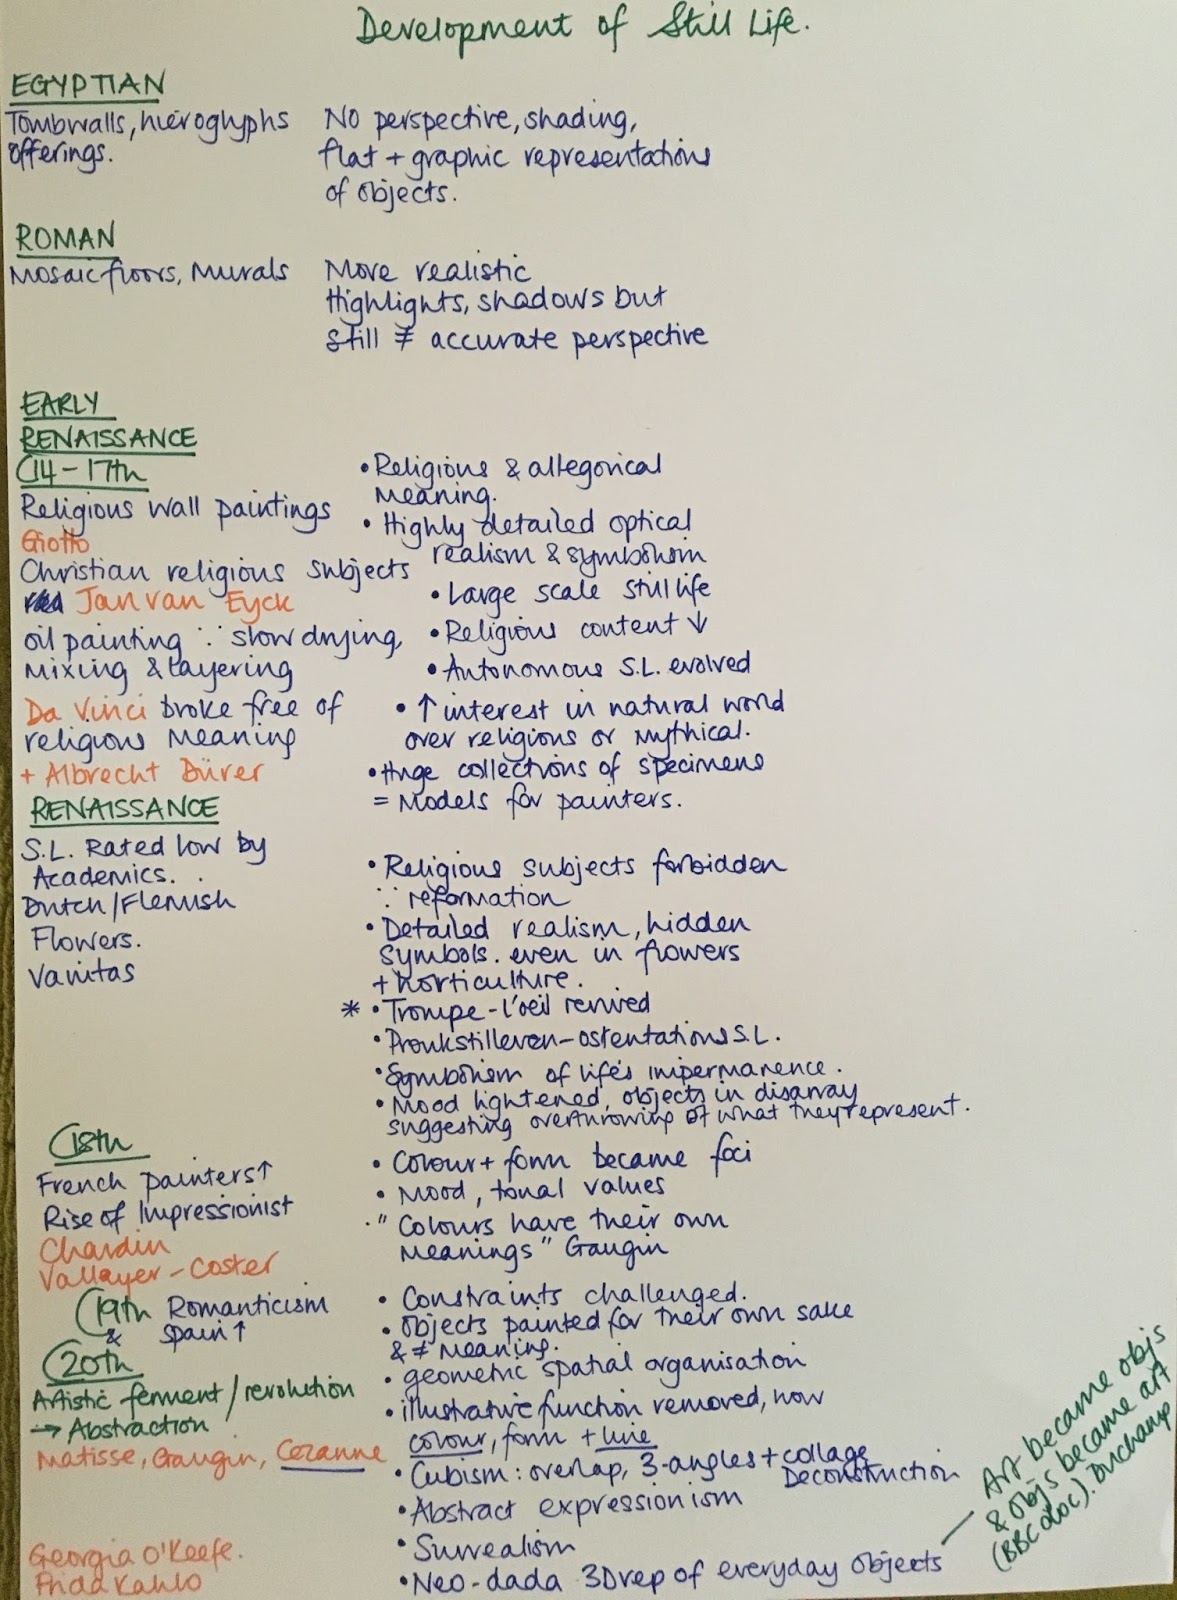 Development of Still Life.
EGYPTIAN
Tombwalls, hieroglyphs
offerings.
No perspective, shading,
flat + graphic representations
of objects.
ROMAN
Mosaic floors, Murals
More realistic
Highlights, shadows but
still ≠ accurate perspective
EARLY
RENAISSANCE
C14-17th
Religious wall paintings
Giotto
Christian religious subjects
Jan van Eyck
oil painting ∵ slow drying,
mixing & layering
Da Vinci broke free of
religious meaning
+ Albrecht Dürer
• Religious & allegorical
meaning.
• Highly detailed optical
realism & symbolism
• Large scale still life
• Religious content ↓
• Autonomous S.L. evolved
• ↑ interest in natural world
over religious or mythical.
• Huge collections of specimens
= models for painters.
RENAISSANCE
S.L. Rated low by
Academics.
Dutch/Flemish
Flowers.
Vanitas
• Religious subjects forbidden
∵ reformation
• Detailed realism, hidden
symbols. even in flowers
+ horticulture.
* • Trompe-l'oeil revived
• Pronkstilleven-ostentations S.L.
• Symbolism of life's impermanence.
• Mood lightened, objects in disarray
suggesting overthrowing of what they represent.
C18th
French painters ↑
Rise of Impressionist
Chardin
Vallayer-Coster
• Colour + form became foci
• Mood, tonal values
• "Colours have their own
meanings" Gaugin
C19th Romanticism
& Spain ↑
• Constraints challenged.
• Objects painted for their own sake
& ≠ meaning.
C20th
Artistic ferment/revolution
→ Abstraction
Matisse, Gaugin, Cezanne
Georgia O'Keefe.
Frida Kahlo
• geometric spatial organisation
• illustrative function removed, now
colour, form + line
• Cubism: overlap, 3-angles + collage
Deconstruction
• Abstract expressionism
• Surrealism
• Neo-dada 3D rep of everyday objects
— Art became objs
& objs became art
(BBC doc). Duchamp